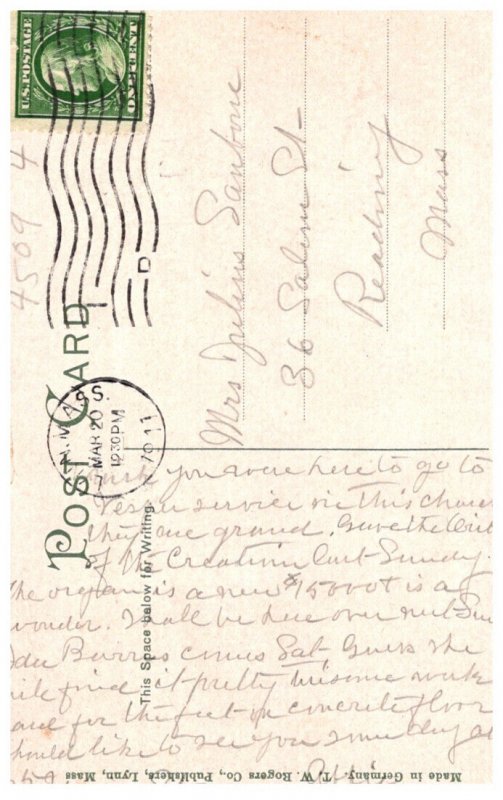 U.S. POSTAGE
POST CARD
4509 4
MASS.
MAR 20
12 30 PM
1911
D
Mrs Julius Sanborn
36 Salem St-
Reading
Mass
This Space below for Writing.
wish you were here to go to
Vesper service in this church
they are grand. Gave the
of the Creation last Sunday.
The organ is a new $15000 & is a
wonder. Shall be here over next Sun
Burris comes Sat- Guess she
will find it pretty tiresome work
and for the feet on concrete floor
should like to see you some day at
Made in Germany. T. W. Rogers Co., Publishers, Lynn, Mass